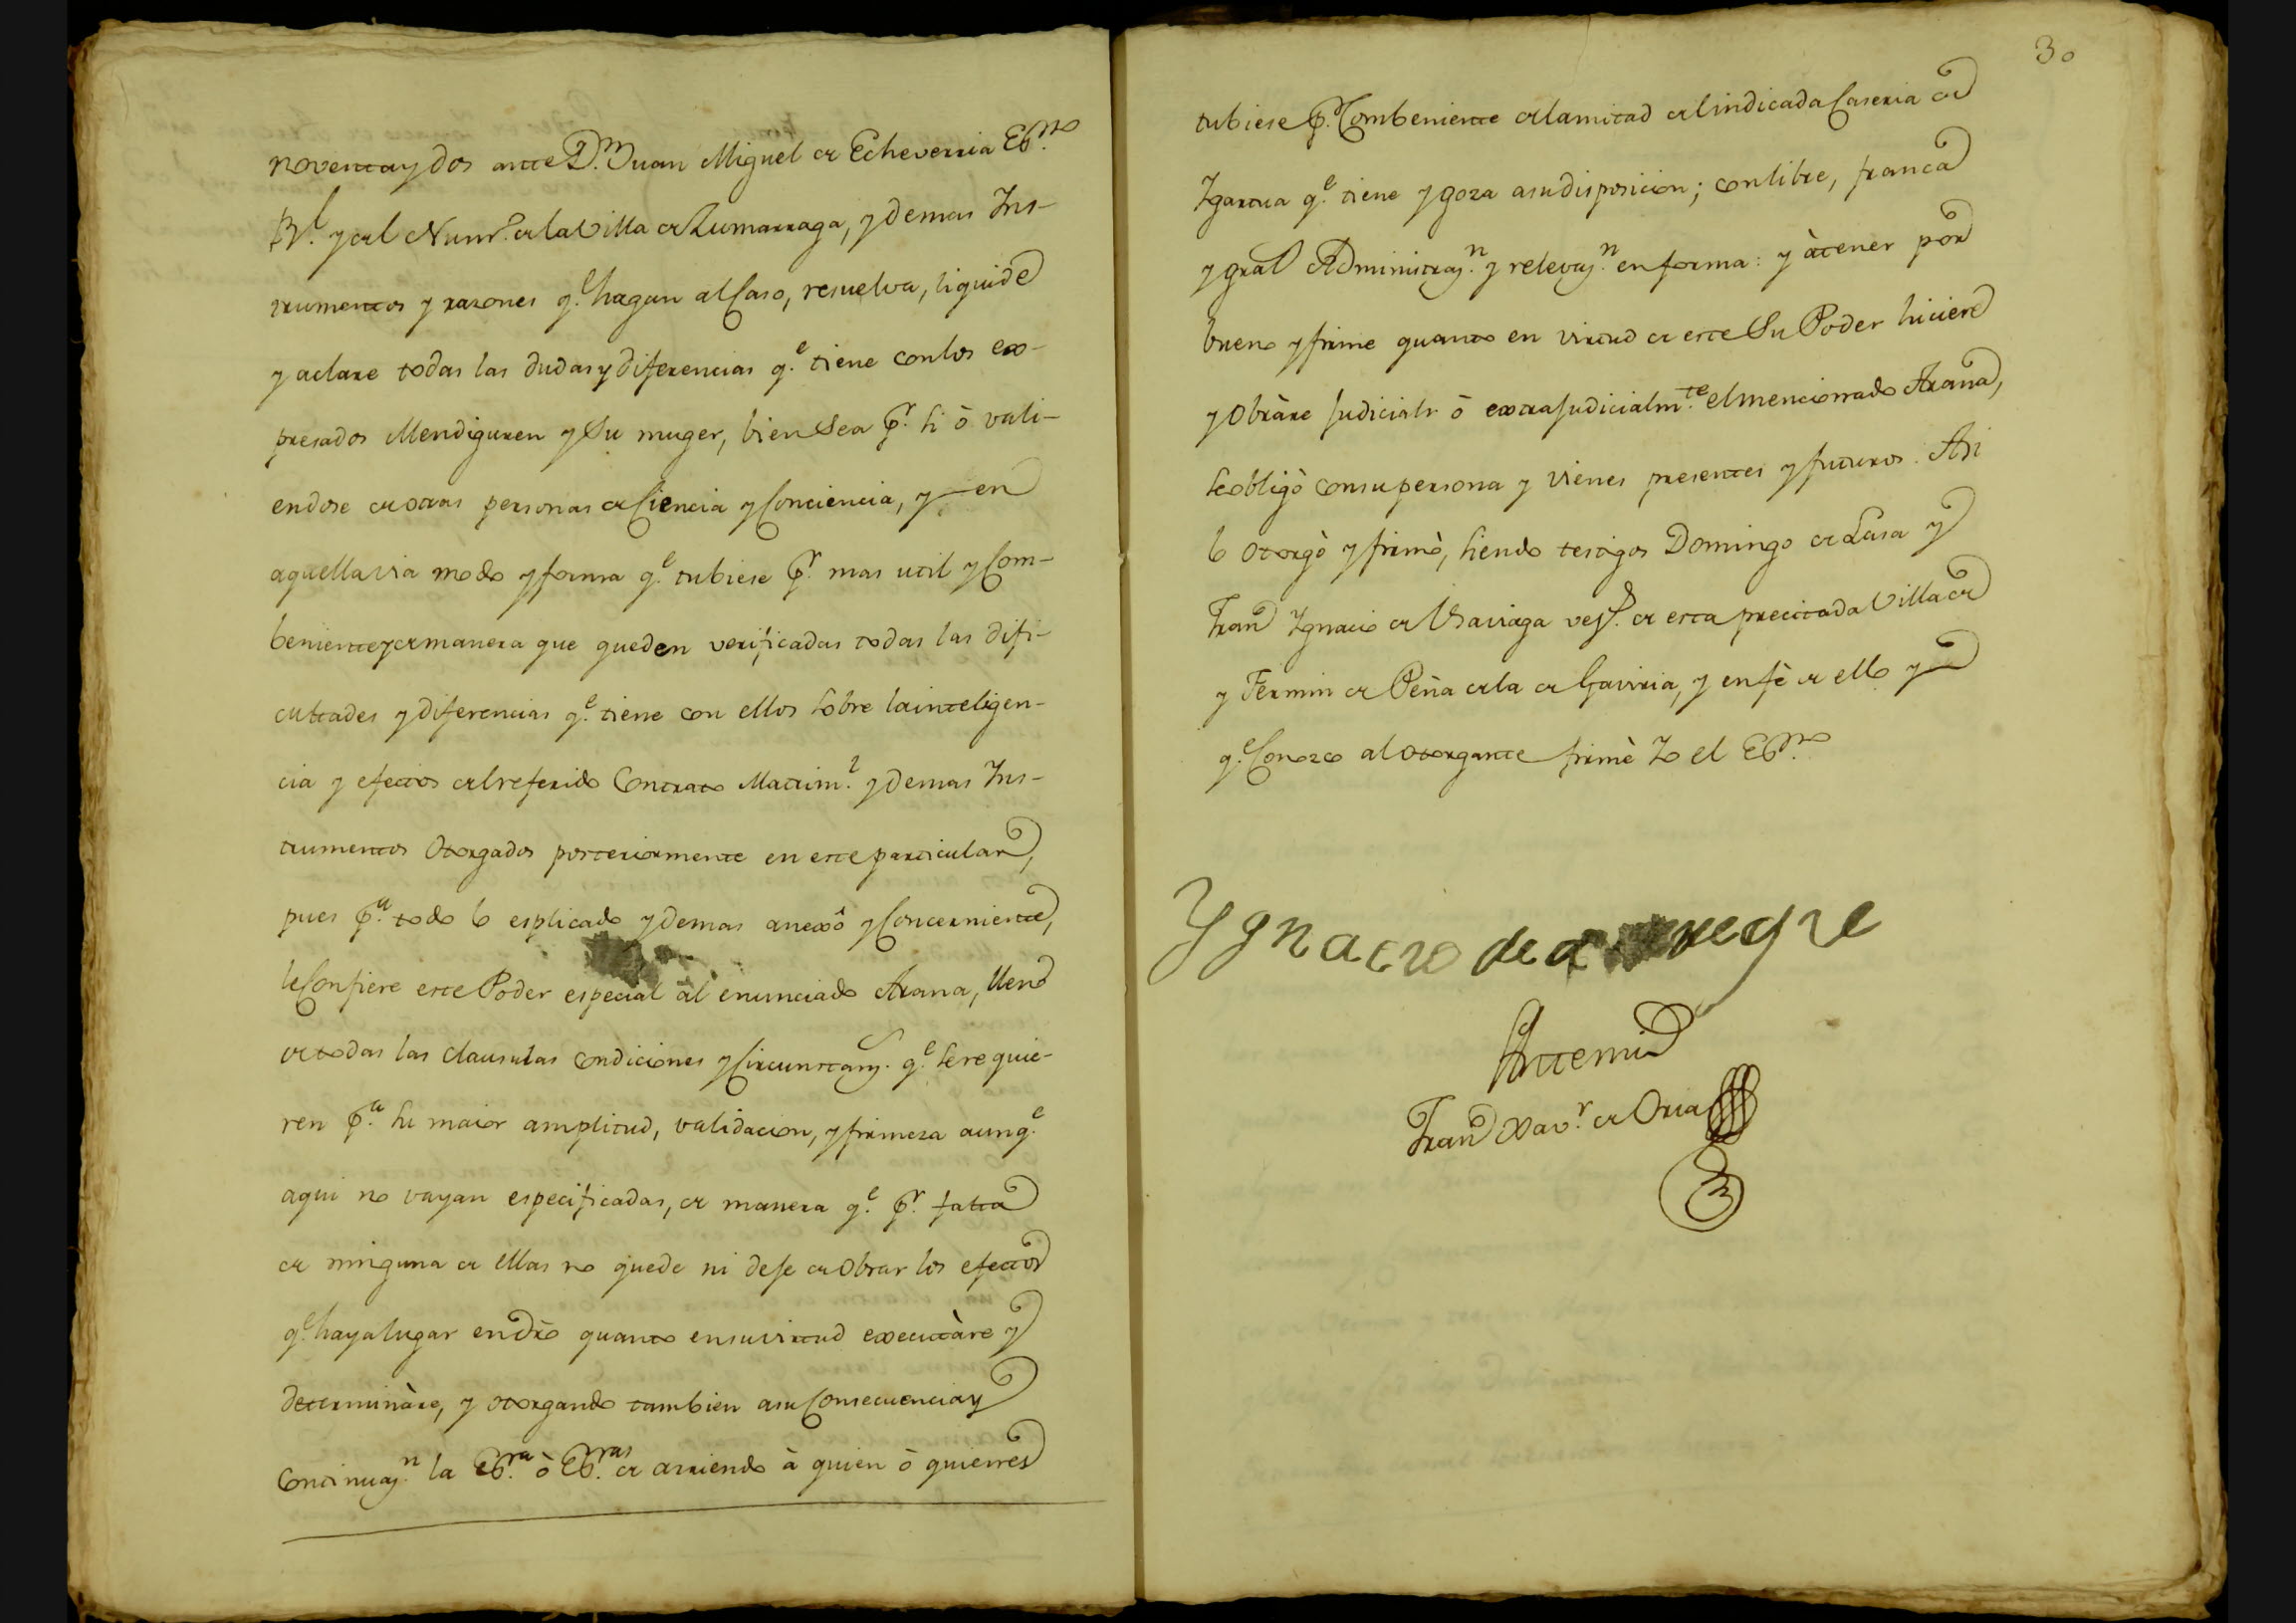 noventa y dos ante D.n Juan Miguel de Echeverria Es.no
R.l y del Num.o de la Villa de Zumarraga, y demas Ins-
trumentos y razones q.e hagan al Caso, resuelva, liquide
y aclare todas las dudas y diferencias q.e tiene con los ex-
presados Mendiguren y Su muger, bien Sea p.r si ò vali-
endose de otras personas de Ciencia y Conciencia, y en
aquella via modo y forma q.e tubiese p.r mas util y Com-
beniente y de manera que queden verificadas todas las difi-
cultades y diferencias q.e tiene con ellos sobre la inteligen-
cia y efectos del referido Contrato Matrim.l y demas Ins-
trumentos Otorgados posteriormente en este particular,
pues p.a todo lo esplicado y demas anexô y Concerniente,
le Confiere este Poder especial al enunciado Arana, lleno
de todas las clausulas condiciones y Circunstanz.s q.e se requie-
ren p.a su maior amplitud, validacion, y firmeza aunq.e
aqui no vayan especificadas, de manera q.e p.r falta
de ninguna de ellas no quede ni deje de Obrar los efectos
q.e haya lugar en dro quanto en su virtud executàre y
determinàre, y otorgando tambien a su Consecuencia y
Continuaz.n la Es.ra ò Es.ras de arriendo à quien ò quienes
30
tubiese p.r Combeniente de la mitad de la indicada Caseria de
Igartua q.e tiene y goza a su disposicion; con libre, franca
y gral Administraz.n y relevaz.n en forma: y à tener por
bueno y firme quanto en virtud de este Su Poder hiciere
y Obràre Judicial ò extrajudicialm.te el mencionado Arana,
se obligò con su persona y vienes presentes y futuros: Asi
lo otorgò y firmò, siendo testigos Domingo de Lasa y
Fran.co Ignacio de vez.s de esta precitada Villa de
y Fermin de Peña de la de Gaviria, y en fè de ello y de
q.e Conozco al otorgante firmè Yo el Es.no
Ygnacio de
Ante mi
Fran.co Xav.r de Oria